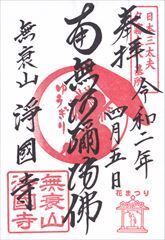 日本三太夫
奉拝
令和二年
四月五日
花まつり
南無阿彌陀佛
ゆうぎり
無衰山
浄國寺
無衰山
浄國寺